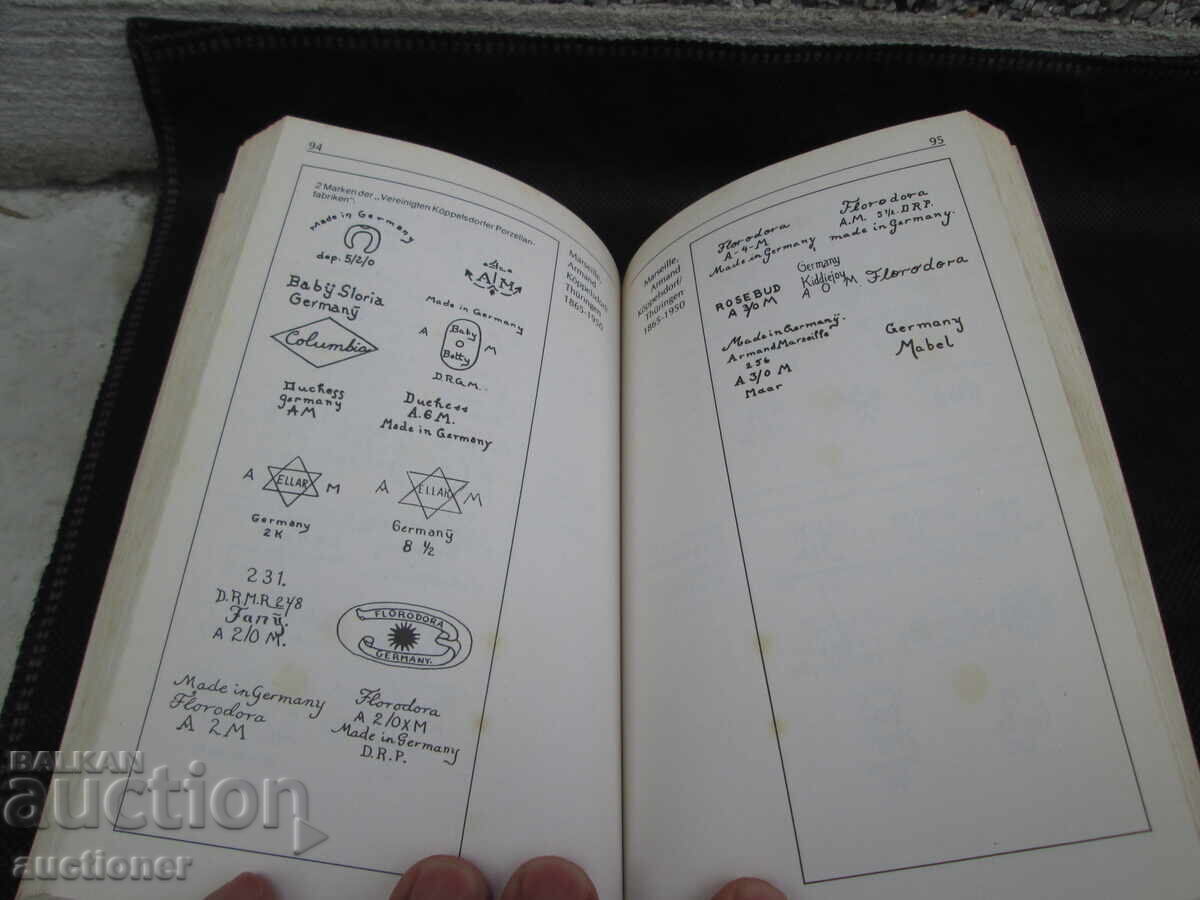 94
2 Marken der „Vereinigten Köppelsdorfer Porzellan-
fabriken":
Made in Germany
dep. 5/2/0
A M
Baby Sloria
Germany
Made in Germany
A Baby M
O
Betty
D.R.G.M.
Columbia
Duchess
Germany
AM
Duchess
A.6 M.
Made in Germany
A ELLAR M
Germany
2K
A ELLAR M
Germany
8 ½
231.
D.R.M.R 248
Fany.
A 2/0 M.
FLORODORA
GERMANY.
Made in Germany
Florodora
A 2 M
Florodora
A 2/0x M
Made in Germany
D.R.P.
Marseille,
Armand
Köppelsdorf/
Thüringen
1865-1950
95
Marseille,
Armand
Köppelsdorf/
Thüringen
1865-1950
Florodora
A-4-M
Made in Germany
Florodora
A.M. 5½. D.R.P.
made in Germany.
ROSEBUD
A 3/0 M
Germany
Kiddiejoy
A O M
Florodora
Made in Germany.
Armand Marseille
256
A 3/0 M
Maar
Germany
Mabel
BALKAN
auction
auctioner